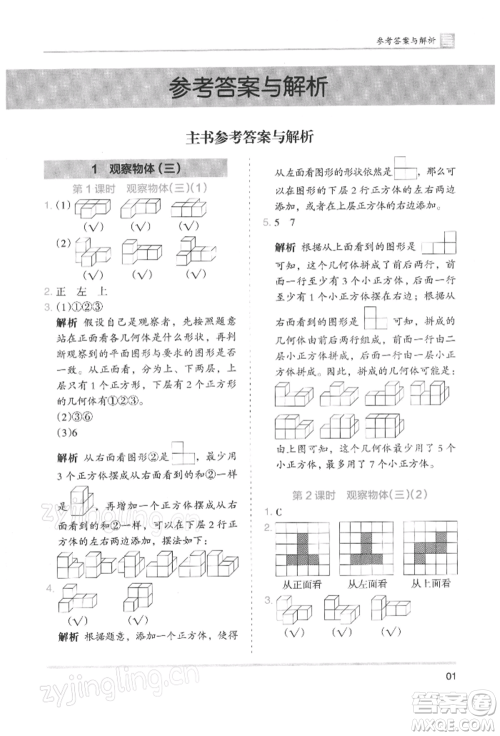 参考答案与解析
参考答案与解析
主书参考答案与解析
1 观察物体(三)
第1课时 观察物体(三)(1)
1. (1)
(√) (√) (√)
(2)
(√) (√) (√)
2. 正 左 上
3. (1)①②③
解析 假设自己是观察者,按照题意
站在正面看各几何体是什么形状,再判
断观察到的平面图形与要求的图形是否
一致。从正面看,分为上、下两层,上
层1个正方形,下层2个正方形的几何体有①②③
(2)③⑥
(3)6
解析 从右面看图形为,最少用
3个正方体、和②一样
是,再增加一个正方体和②一样
的几何体可以在下层2个正方体
的左右两边添加。摆法如下:
4.
解析 根据题意,添一个正方体,使得
从左面看图形的形状依然是,可
在图形的下层2个正方体的左右两边
添加。
5. 5 7
解析 根据从上面看到的图形是
可知,这个几何体拼成了前后两行,前
面一行至少有2个小正方体,后面一行
至少有3个小正方体;根据从左面看
到的图形是可知,拼成的几何体
由前后两行组成,前面一行由一层小正
方体拼成,后面一行由二层小正方体拼成。
因此,拼成的几何体可能是:
由此可知,这个几何体可能最少用了5
个正方体,最多用了7个小正方体。
第2课时 观察物体(三)(2)
1. C
2.
从正面看 从左面看 从上面看
3.
(√) (√)
zyjingling.cn
作业精灵
答案圈
MXQE.COM
01